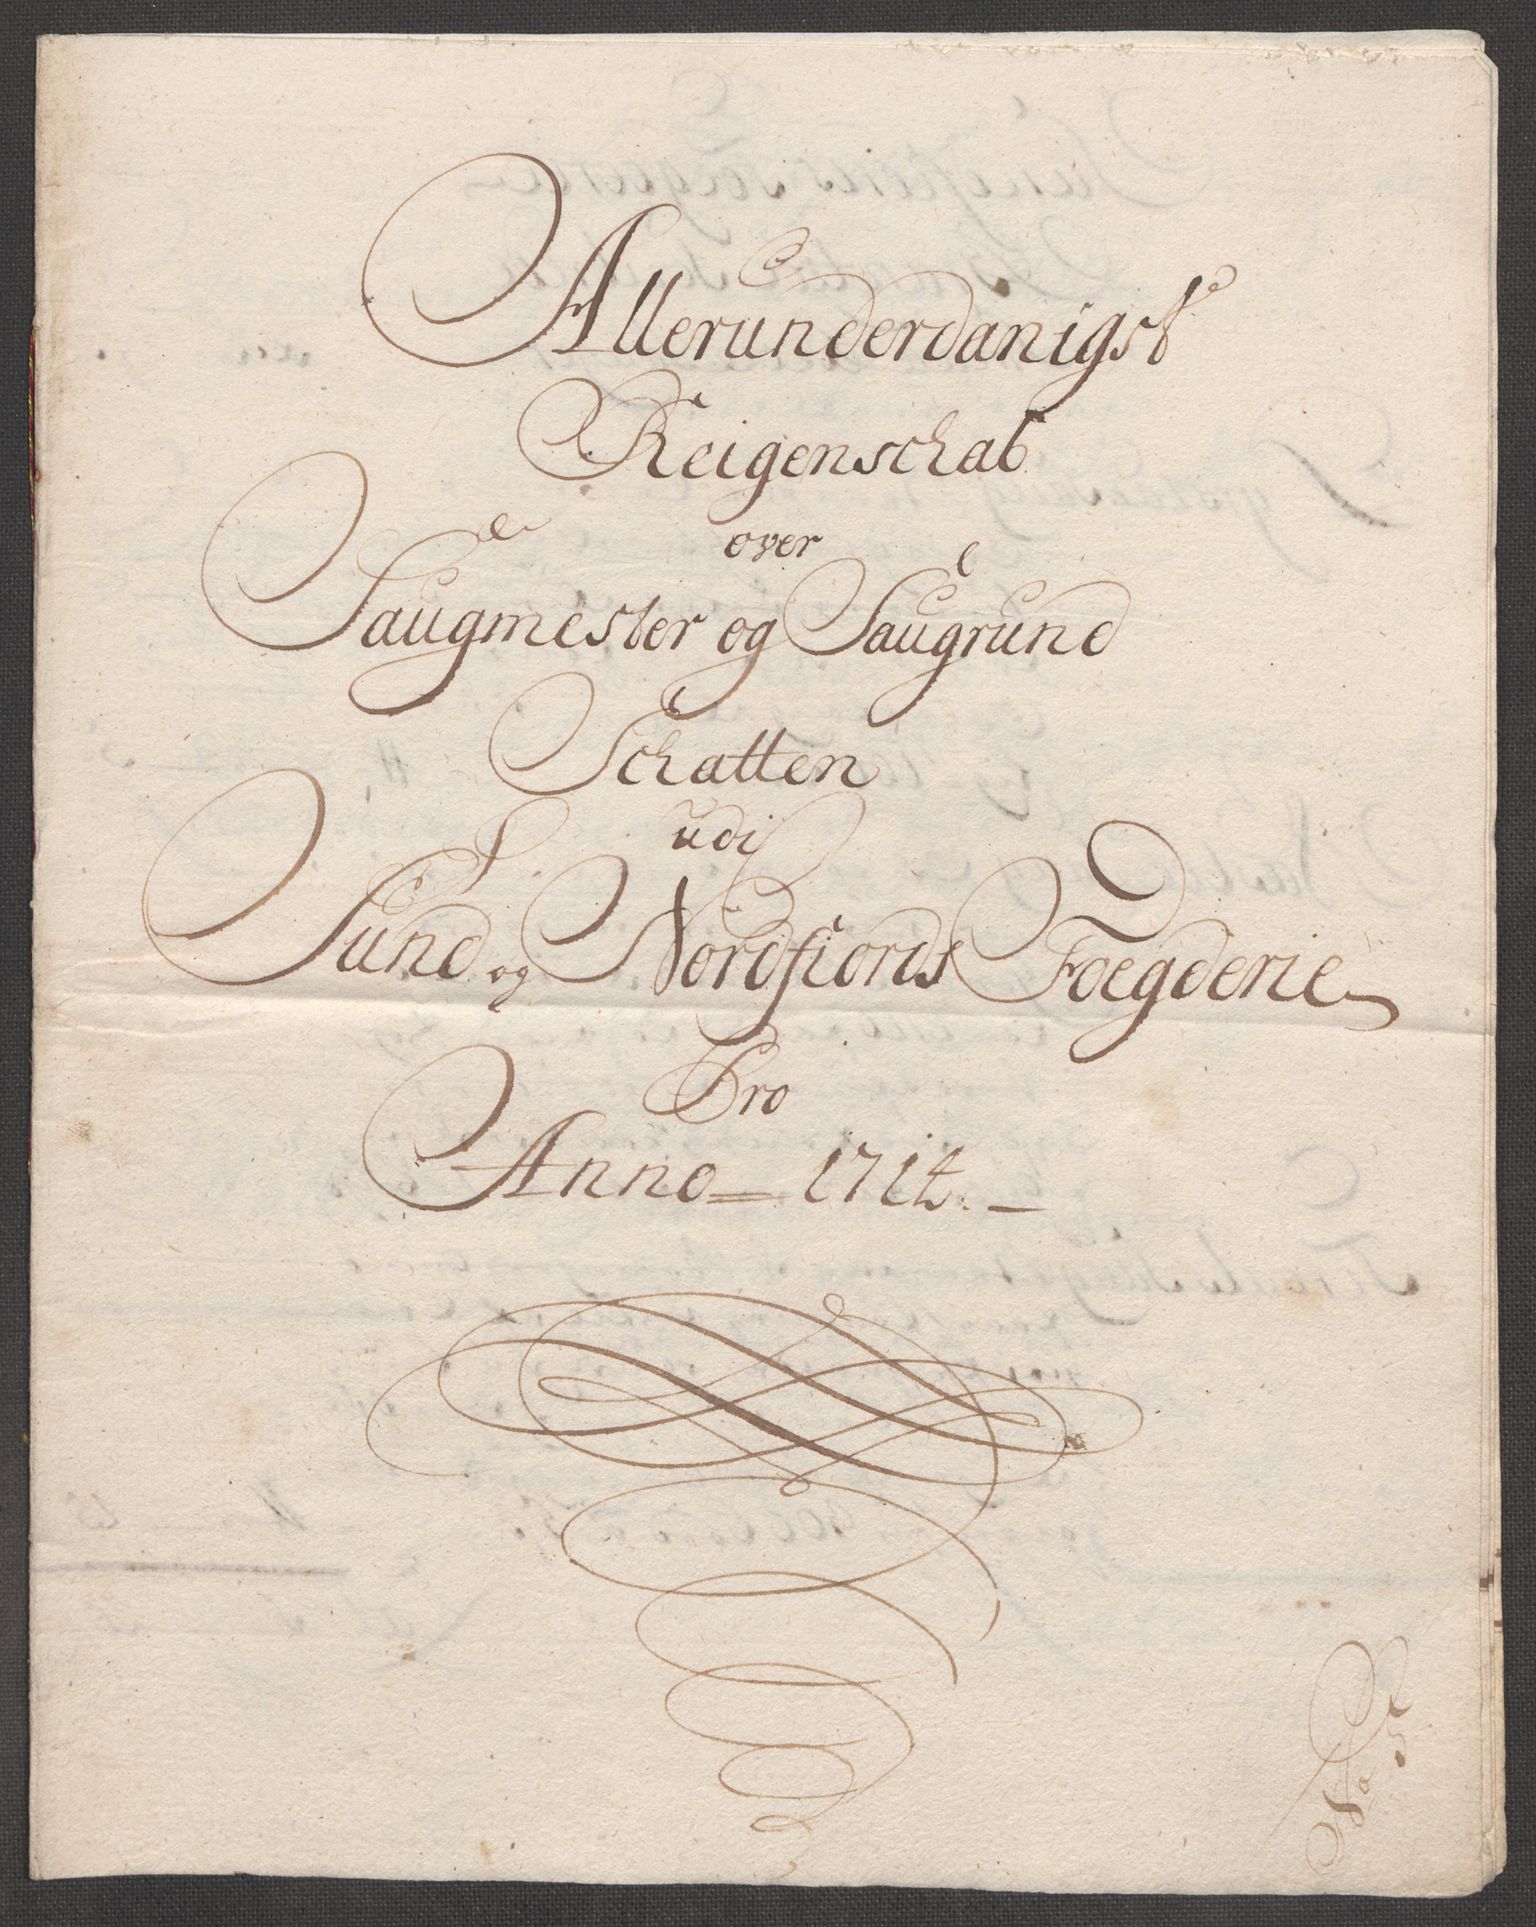 Allerunderdanigst
Reigenschab
over
Saugmester og Saugrund
Schatten
udi
Sund og Nordfiords Foegderie
Pro
Anno 1714.
No 5